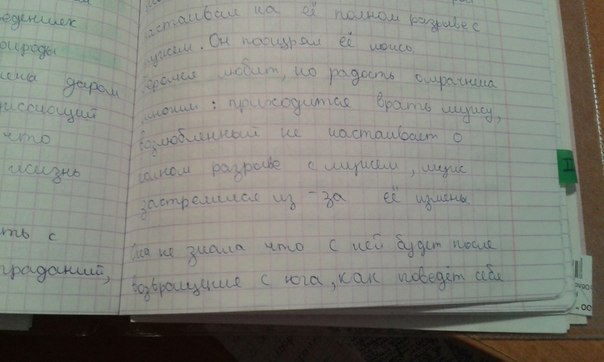 настаивал на её полном разрыве с
мужем. Он поощрял её
любит, но радость омрачила
: приходится врать мужу,
возлюбленный не настаивает о
полном разрыве с мужем, муж
застрелился из-за её измены
Она не знала что с ней будет после
возвращения с юга, как поведёт себя
ведением
природы
даром
что
жизнь
ть с
страданий,
II